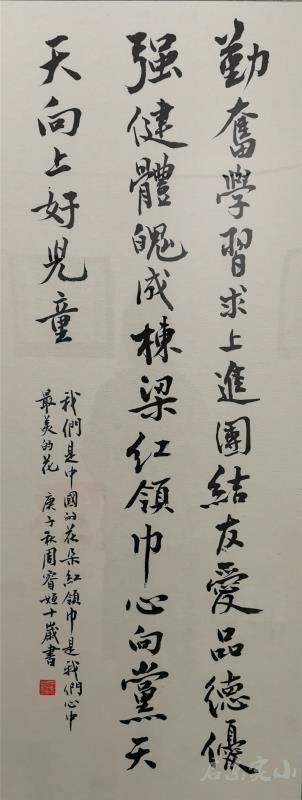 勤奮學習求上進團結友愛品德優
强健體魄成棟梁红領巾心向黨天
天向上好兒童
我們是中國的花朵红領巾是我們心中
最美的花 庚子秋周睿姮十歲書